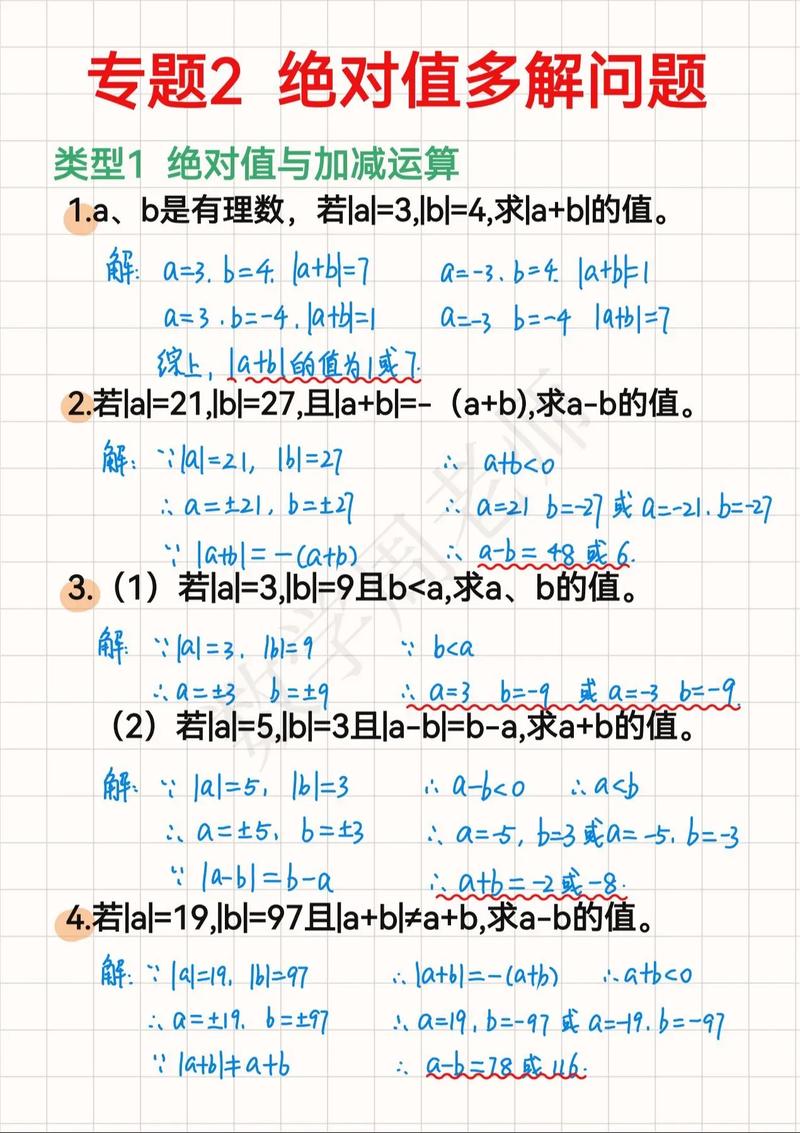 专题2 绝对值多解问题
类型1 绝对值与加减运算
1.a、b是有理数，若|a|=3,|b|=4,求|a+b|的值。
解: a=3. b=4. |a+b|=7 a=-3. b=4. |a+b|=1
a=3. b=-4. |a+b|=1 a=-3 b=-4 |a+b|=7
综上, |a+b|的值为1或7.
2.若|a|=21,|b|=27,且|a+b|=-（a+b),求a-b的值。
解: ∵|a|=21, |b|=27 ∴ a+b<0
∴ a=±21, b=±27 ∴ a=21 b=-27 或 a=-21. b=-27
∵ |a+b|=-(a+b) ∴ a-b=48 或 6.
3.（1）若|a|=3,|b|=9且b<a,求a、b的值。
解: ∵|a|=3, |b|=9 ∵ b<a
∴a=±3 b=±9 ∴ a=3 b=-9 或 a=-3 b=-9.
（2）若|a|=5,|b|=3且|a-b|=b-a,求a+b的值。
解: ∵ |a|=5, |b|=3 ∴ a-b<0 ∴ a<b
∴ a=±5, b=±3 ∴ a=-5, b=3 或 a=-5. b=-3
∵ |a-b|=b-a ∴ a+b=-2 或 -8.
4.若|a|=19,|b|=97且|a+b|≠a+b,求a-b的值。
解: ∵ |a|=19, |b|=97 ∴|a+b|=-(a+b) ∴a+b<0
∴ a=±19. b=±97 ∴ a=19, b=-97 或 a=-19. b=-97
∵ |a+b|≠a+b ∴ a-b=78 或 116.
数学周老师